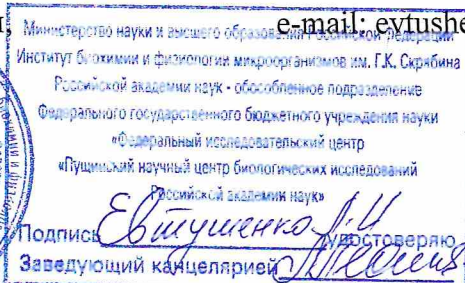 e-mail: evtushe
Министерство науки и высшего образования Российской Федерации
Институт биохимии и физиологии микроорганизмов им. Г.К. Скрябина
Российской академии наук - обособленное подразделение
Федерального государственного бюджетного учреждения науки
«Федеральный исследовательский центр
«Пущинский научный центр биологических исследований
Российской академии наук»
Подпись Евтушенко Л.И удостоверяю
Заведующий канцелярией